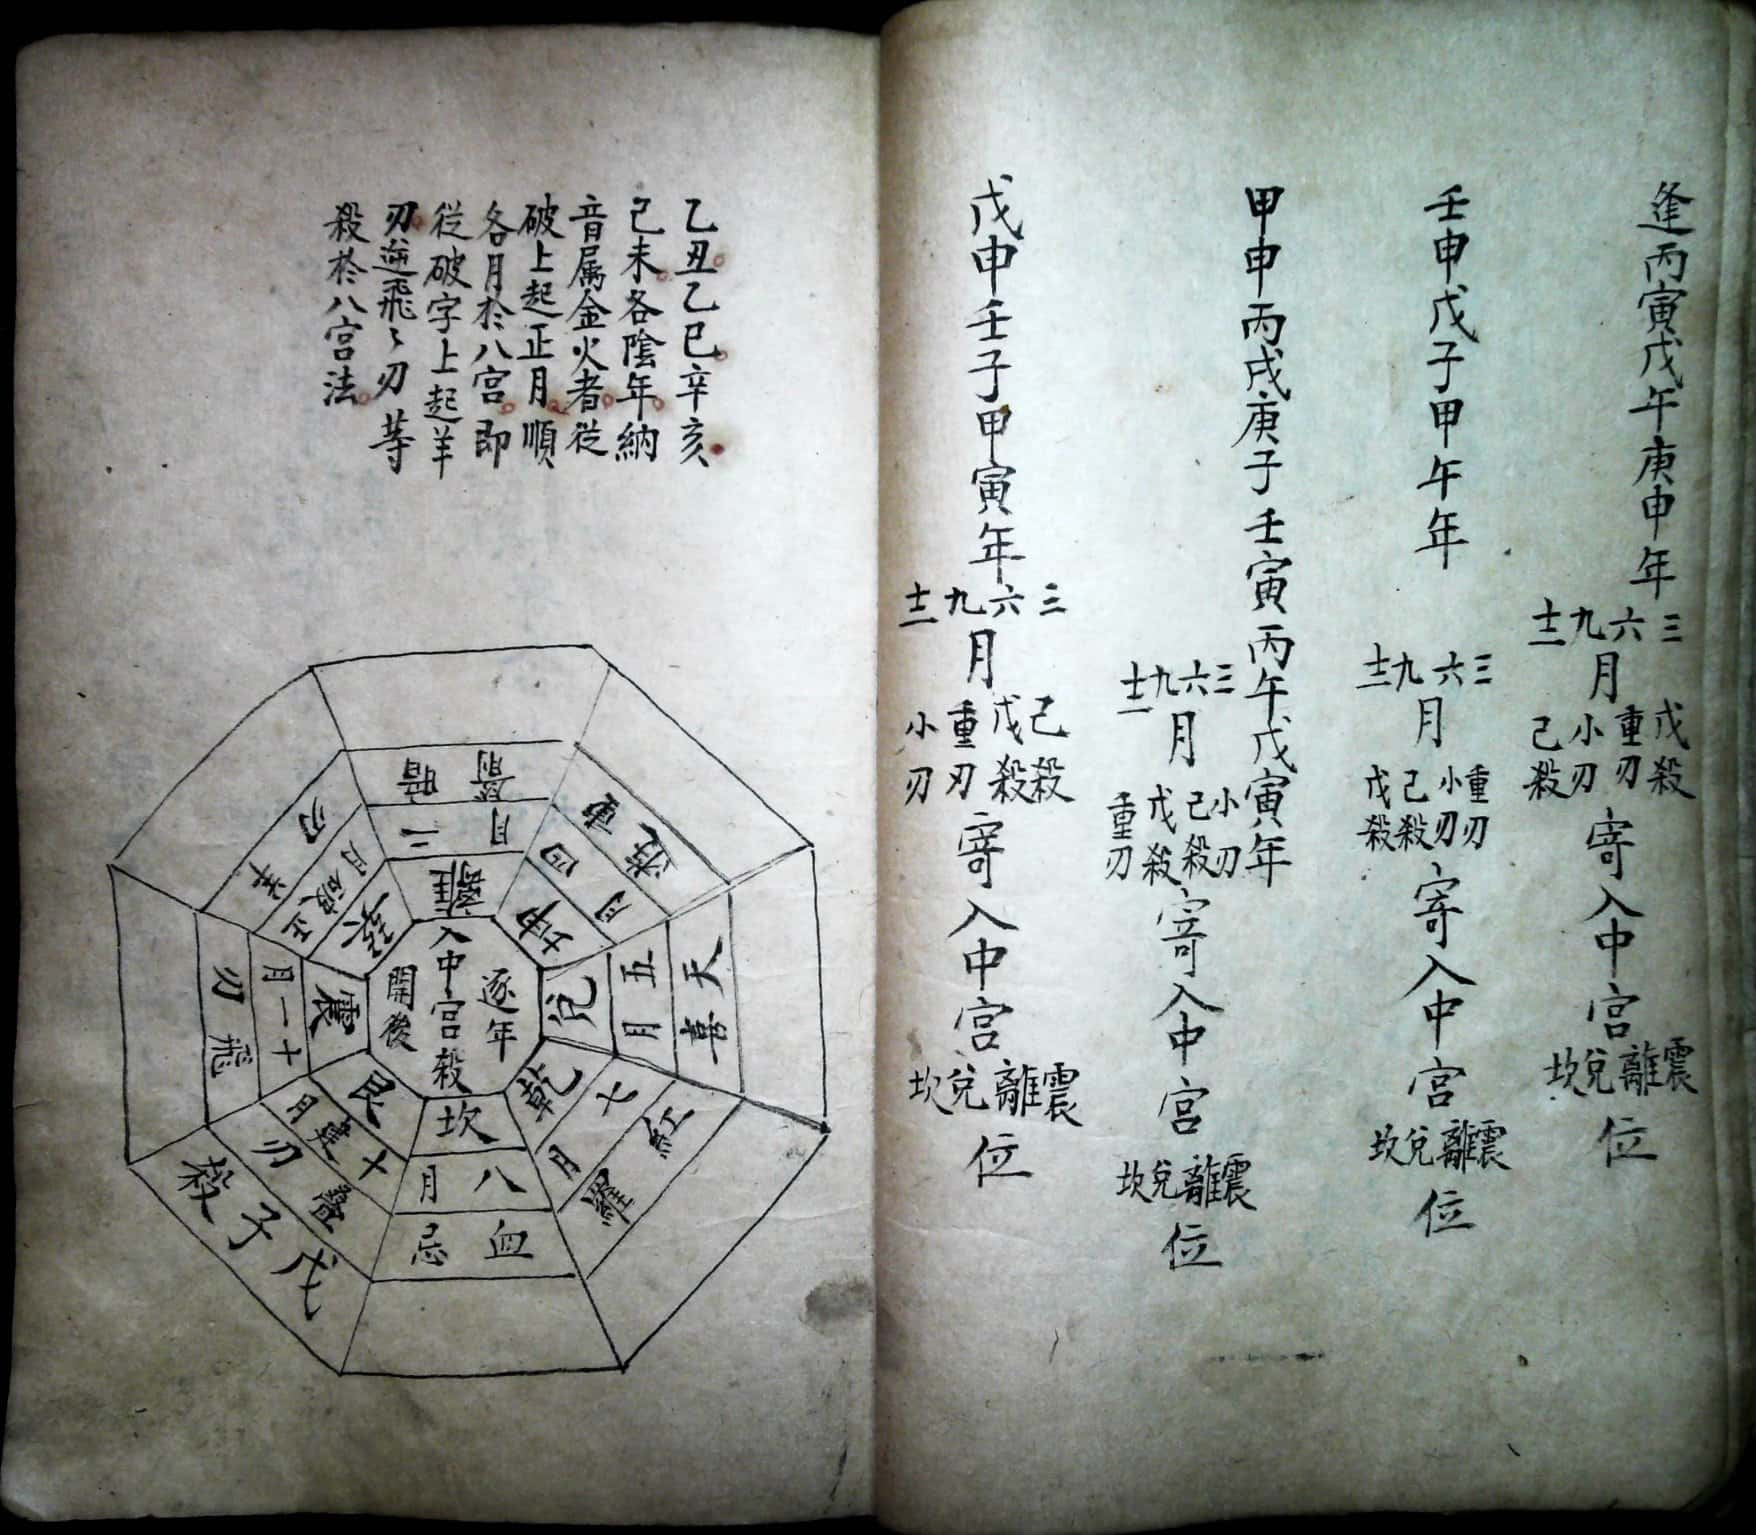 逢丙寅戊午庚申年
三六九十二
月
戊殺重刃小刃己殺
寄入中宮
震離兌坎
位
壬申戊子甲午年
三六九十二
月
重刃小刃己殺戊殺
寄入中宮
震離兌坎
位
甲申丙戌庚子壬寅丙午戊寅年
三六九十二
月
小刃己殺戊殺重刃
寄入中宮
震離兌坎
位
戊申壬子甲寅年
三六九十二
月
己殺戊殺重刃小刃
寄入中宮
震離兌坎
位
乙丑乙巳辛亥
己未各陰年納
音属金火者從
破上起正月順
各月於八宮即
從破字上起羊
刃逆飛〻刃等
殺於八宮法
逐年
入中宮殺
開後
離
二月
暗箭
坤
四月
兌
五月
天喜
乾
七月
紅羅
坎
八月
血忌
艮
十月建
疊刃
戊子殺
震
十一月
飛刃
巽
正月破
羊刃